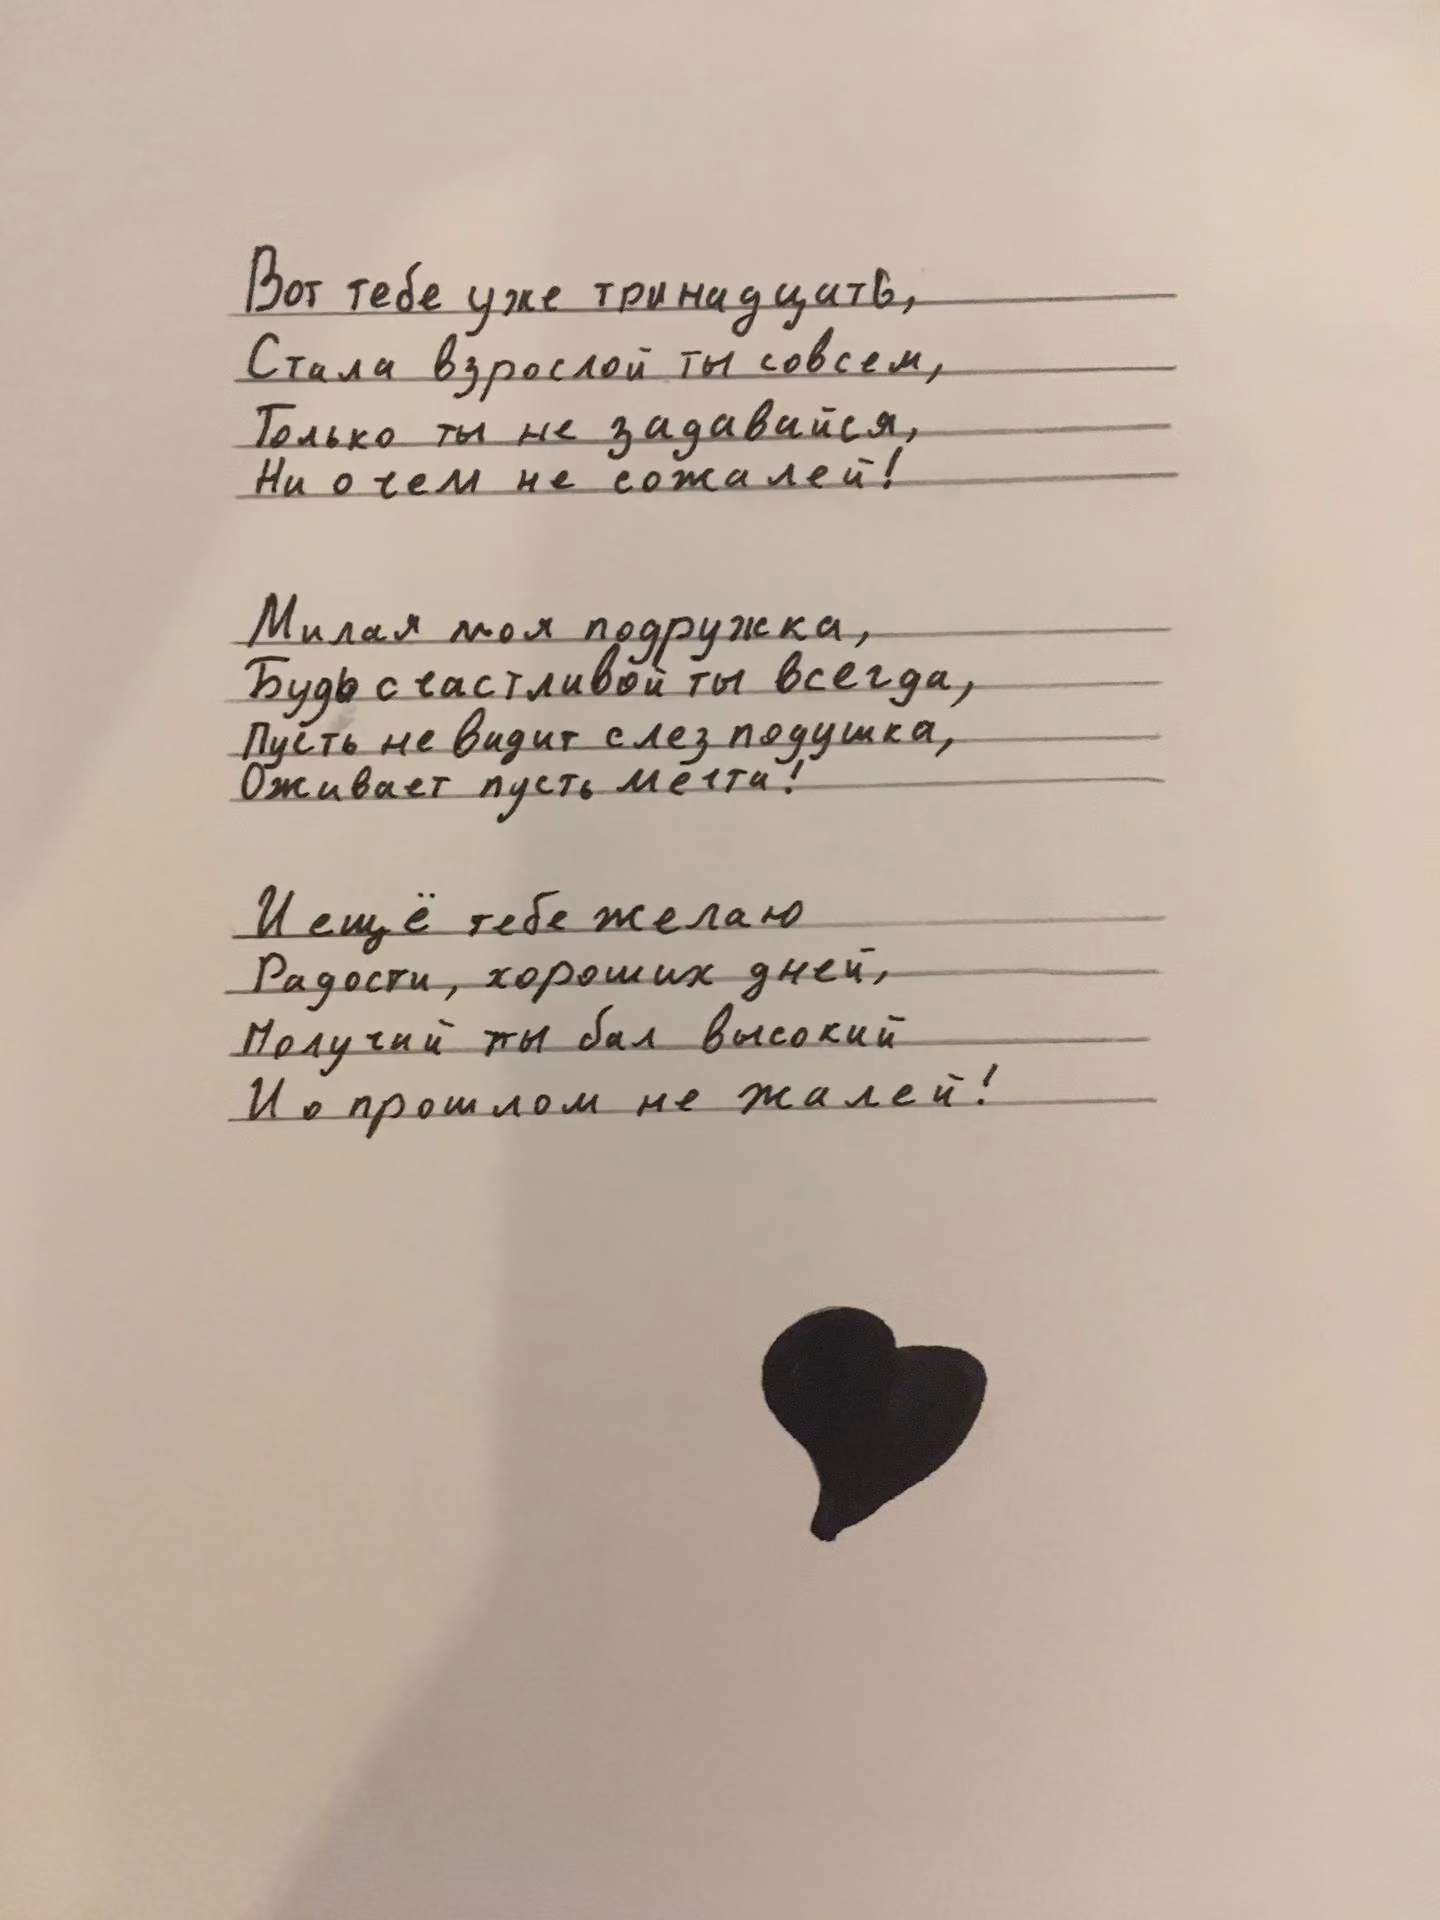 Вот тебе уже тринадцать,
Стала взрослой ты совсем,
Только ты не задавайся,
Ни о чем не сожалей!
Милая моя подружка,
Будь счастливой ты всегда,
Пусть не видит слез подушка,
Оживает пусть мечта!
И ещё тебе желаю
Радости, хороших дней,
Получай ты бал высокий
И о прошлом не жалей!